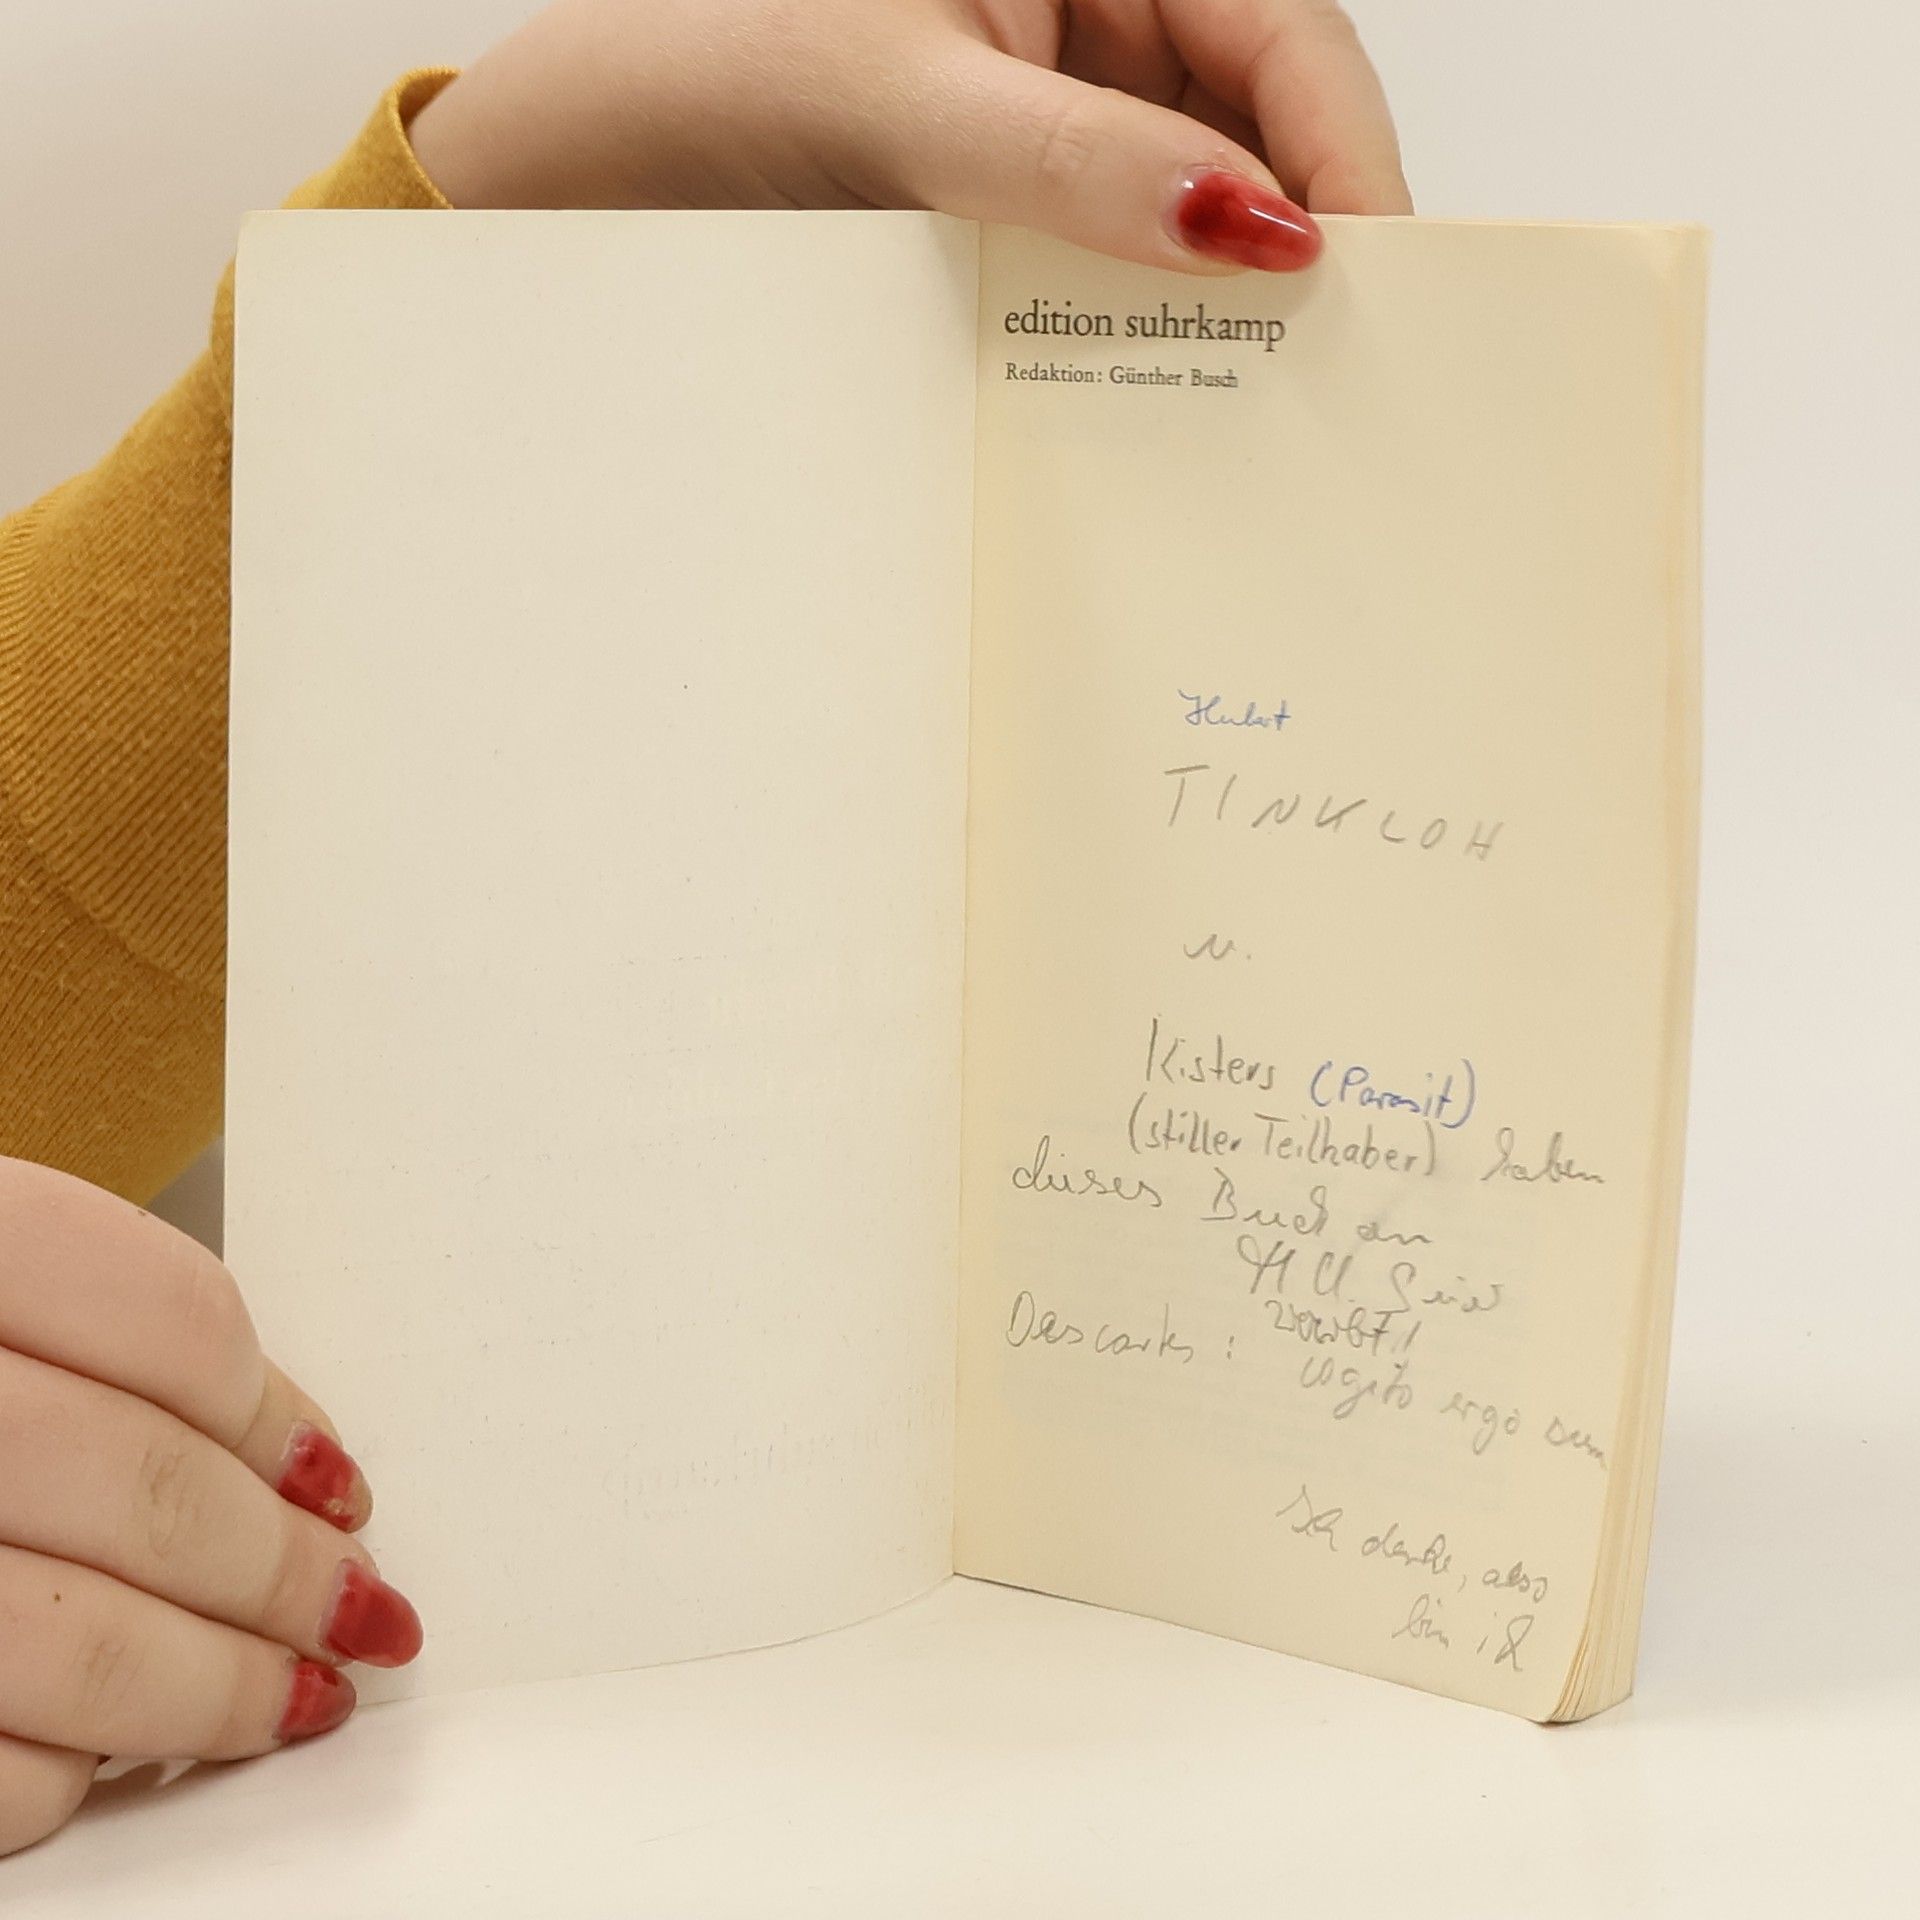 edition suhrkamp
Redaktion: Günther Busch
Hubert
TINKLOH
u.
Kisters (Parasit)
(stiller Teilhaber) haben
dieses Buch an
H U.
vererbt!
Descartes :
cogito ergo sum
Ich denke, also
bin ich